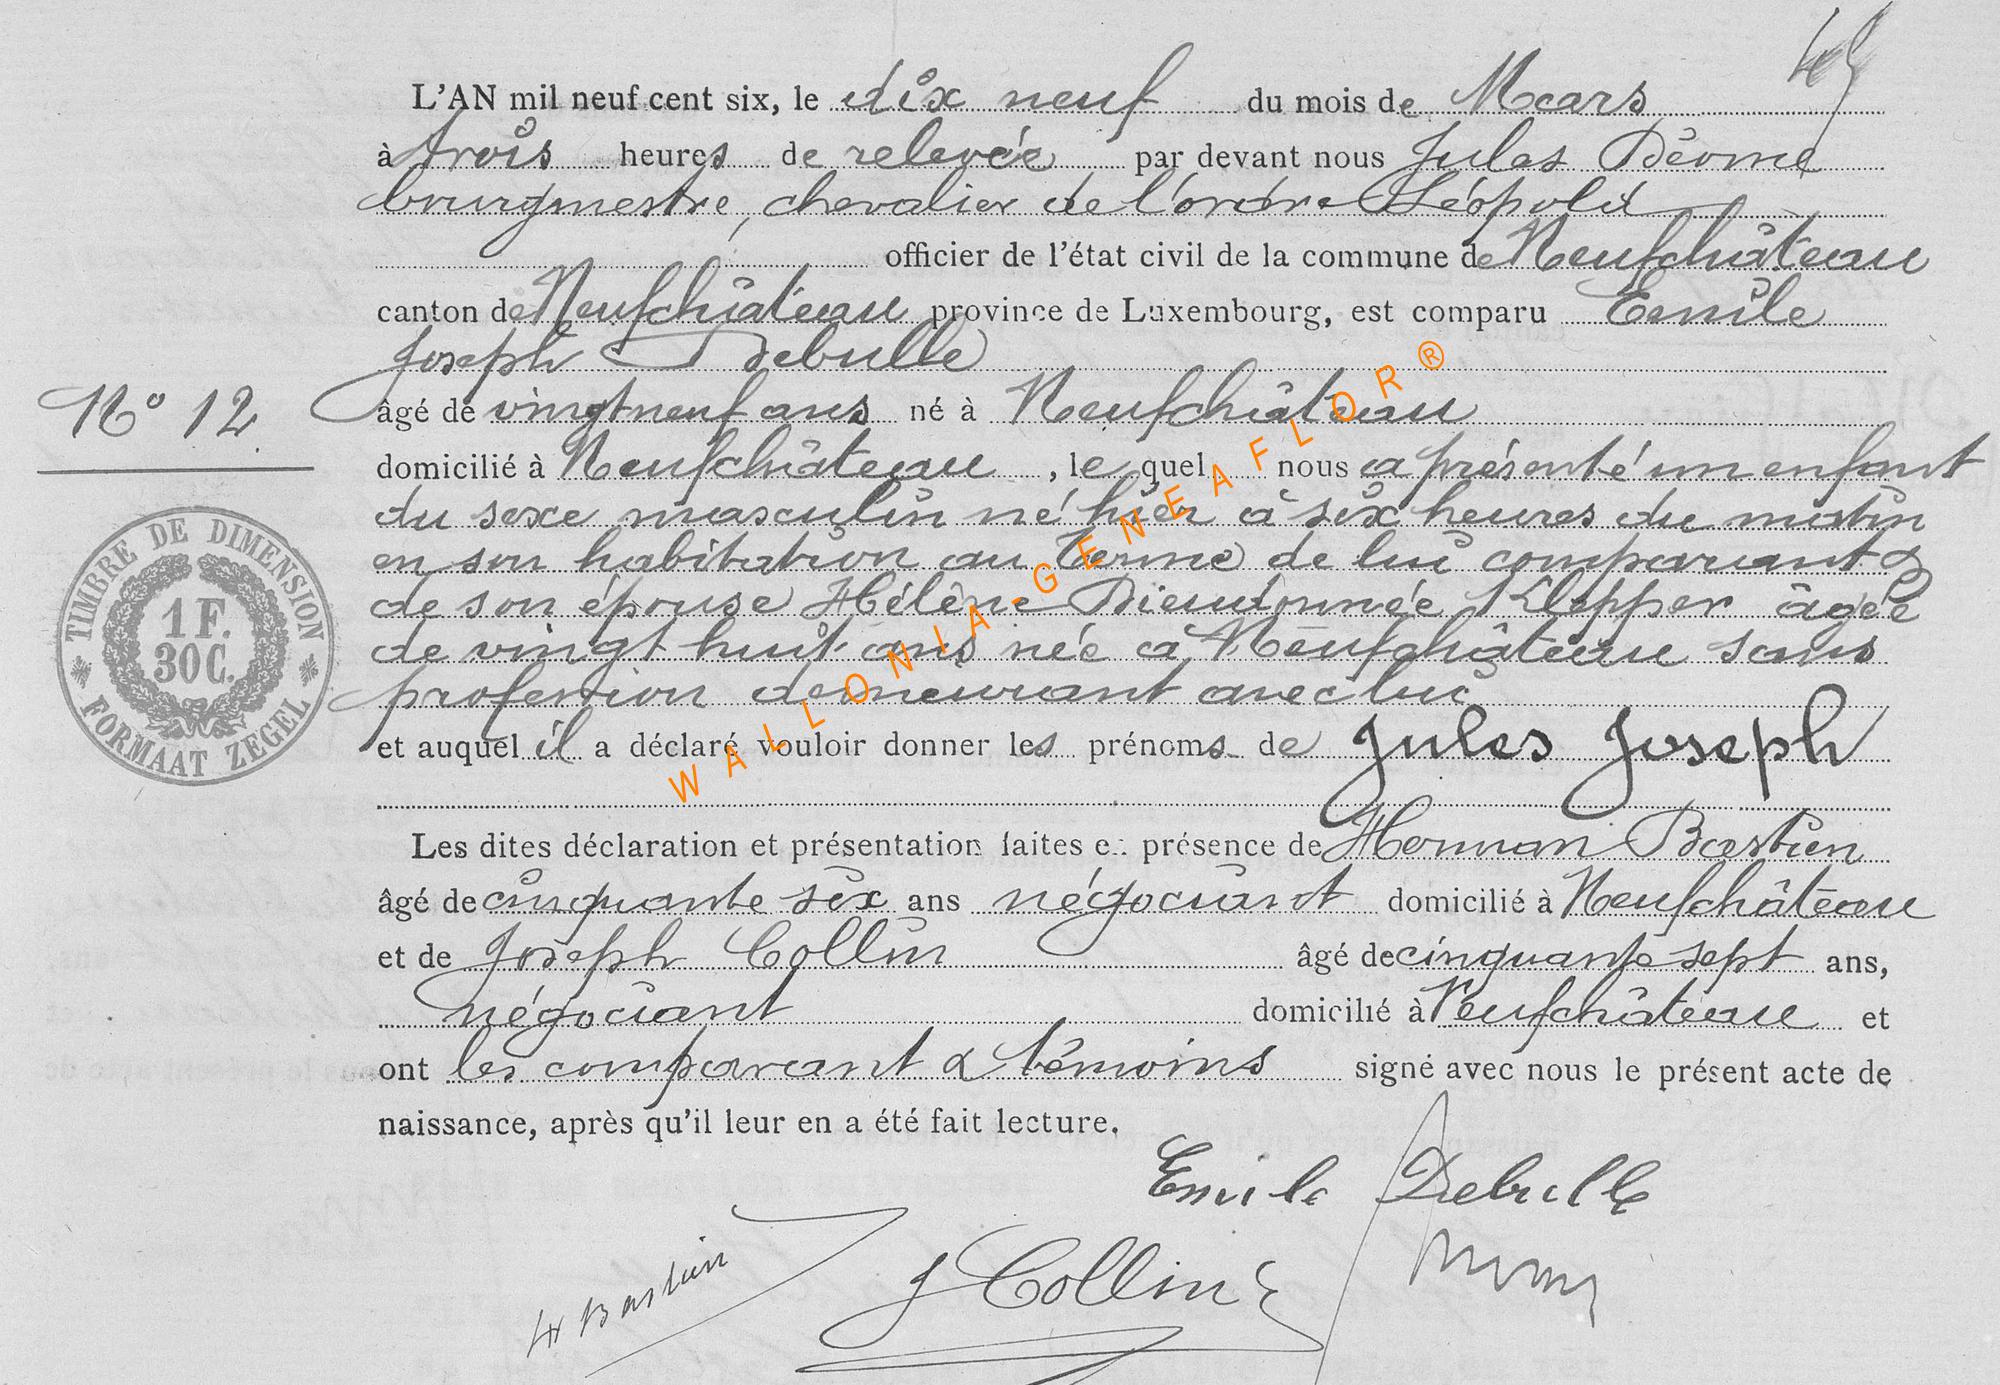 L'AN mil neuf cent six, le dix neuf du mois de Mars
à trois heures de relevée par devant nous Jules Déome
bourgmestre, chevalier de l'ordre Léopold
officier de l'état civil de la commune de Neufchâteau
canton de Neufchâteau province de Luxembourg, est comparu Emile
Joseph Debulle
N° 12
âgé de vingtneuf ans né à Neufchâteau
domicilié à Neufchâteau, lequel nous a présenté un enfant
du sexe masculin né hier à six heures du matin
en son habitation au Terme de lui comparant &
de son épouse Hélène Dieudonnée Klepper âgée
de vingt huit ans née à Neufchâteau sans
profession demeurant avec lui
et auquel il a déclaré vouloir donner les prénoms de Jules Joseph
Les dites déclaration et présentation faites en présence de Herman Bastien
âgé de cinquante six ans négociant domicilié à Neufchâteau
et de Joseph Collin âgé de cinquante sept ans,
négociant domicilié à Neufchâteau et
ont les comparant & témoins signé avec nous le présent acte de
naissance, après qu'il leur en a été fait lecture.
Emile Debulle
H Bastien
J Collin
TIMBRE DE DIMENSION
1 F.
30 C.
FORMAAT ZEGEL
WALLONIA-GENEAFLOR®